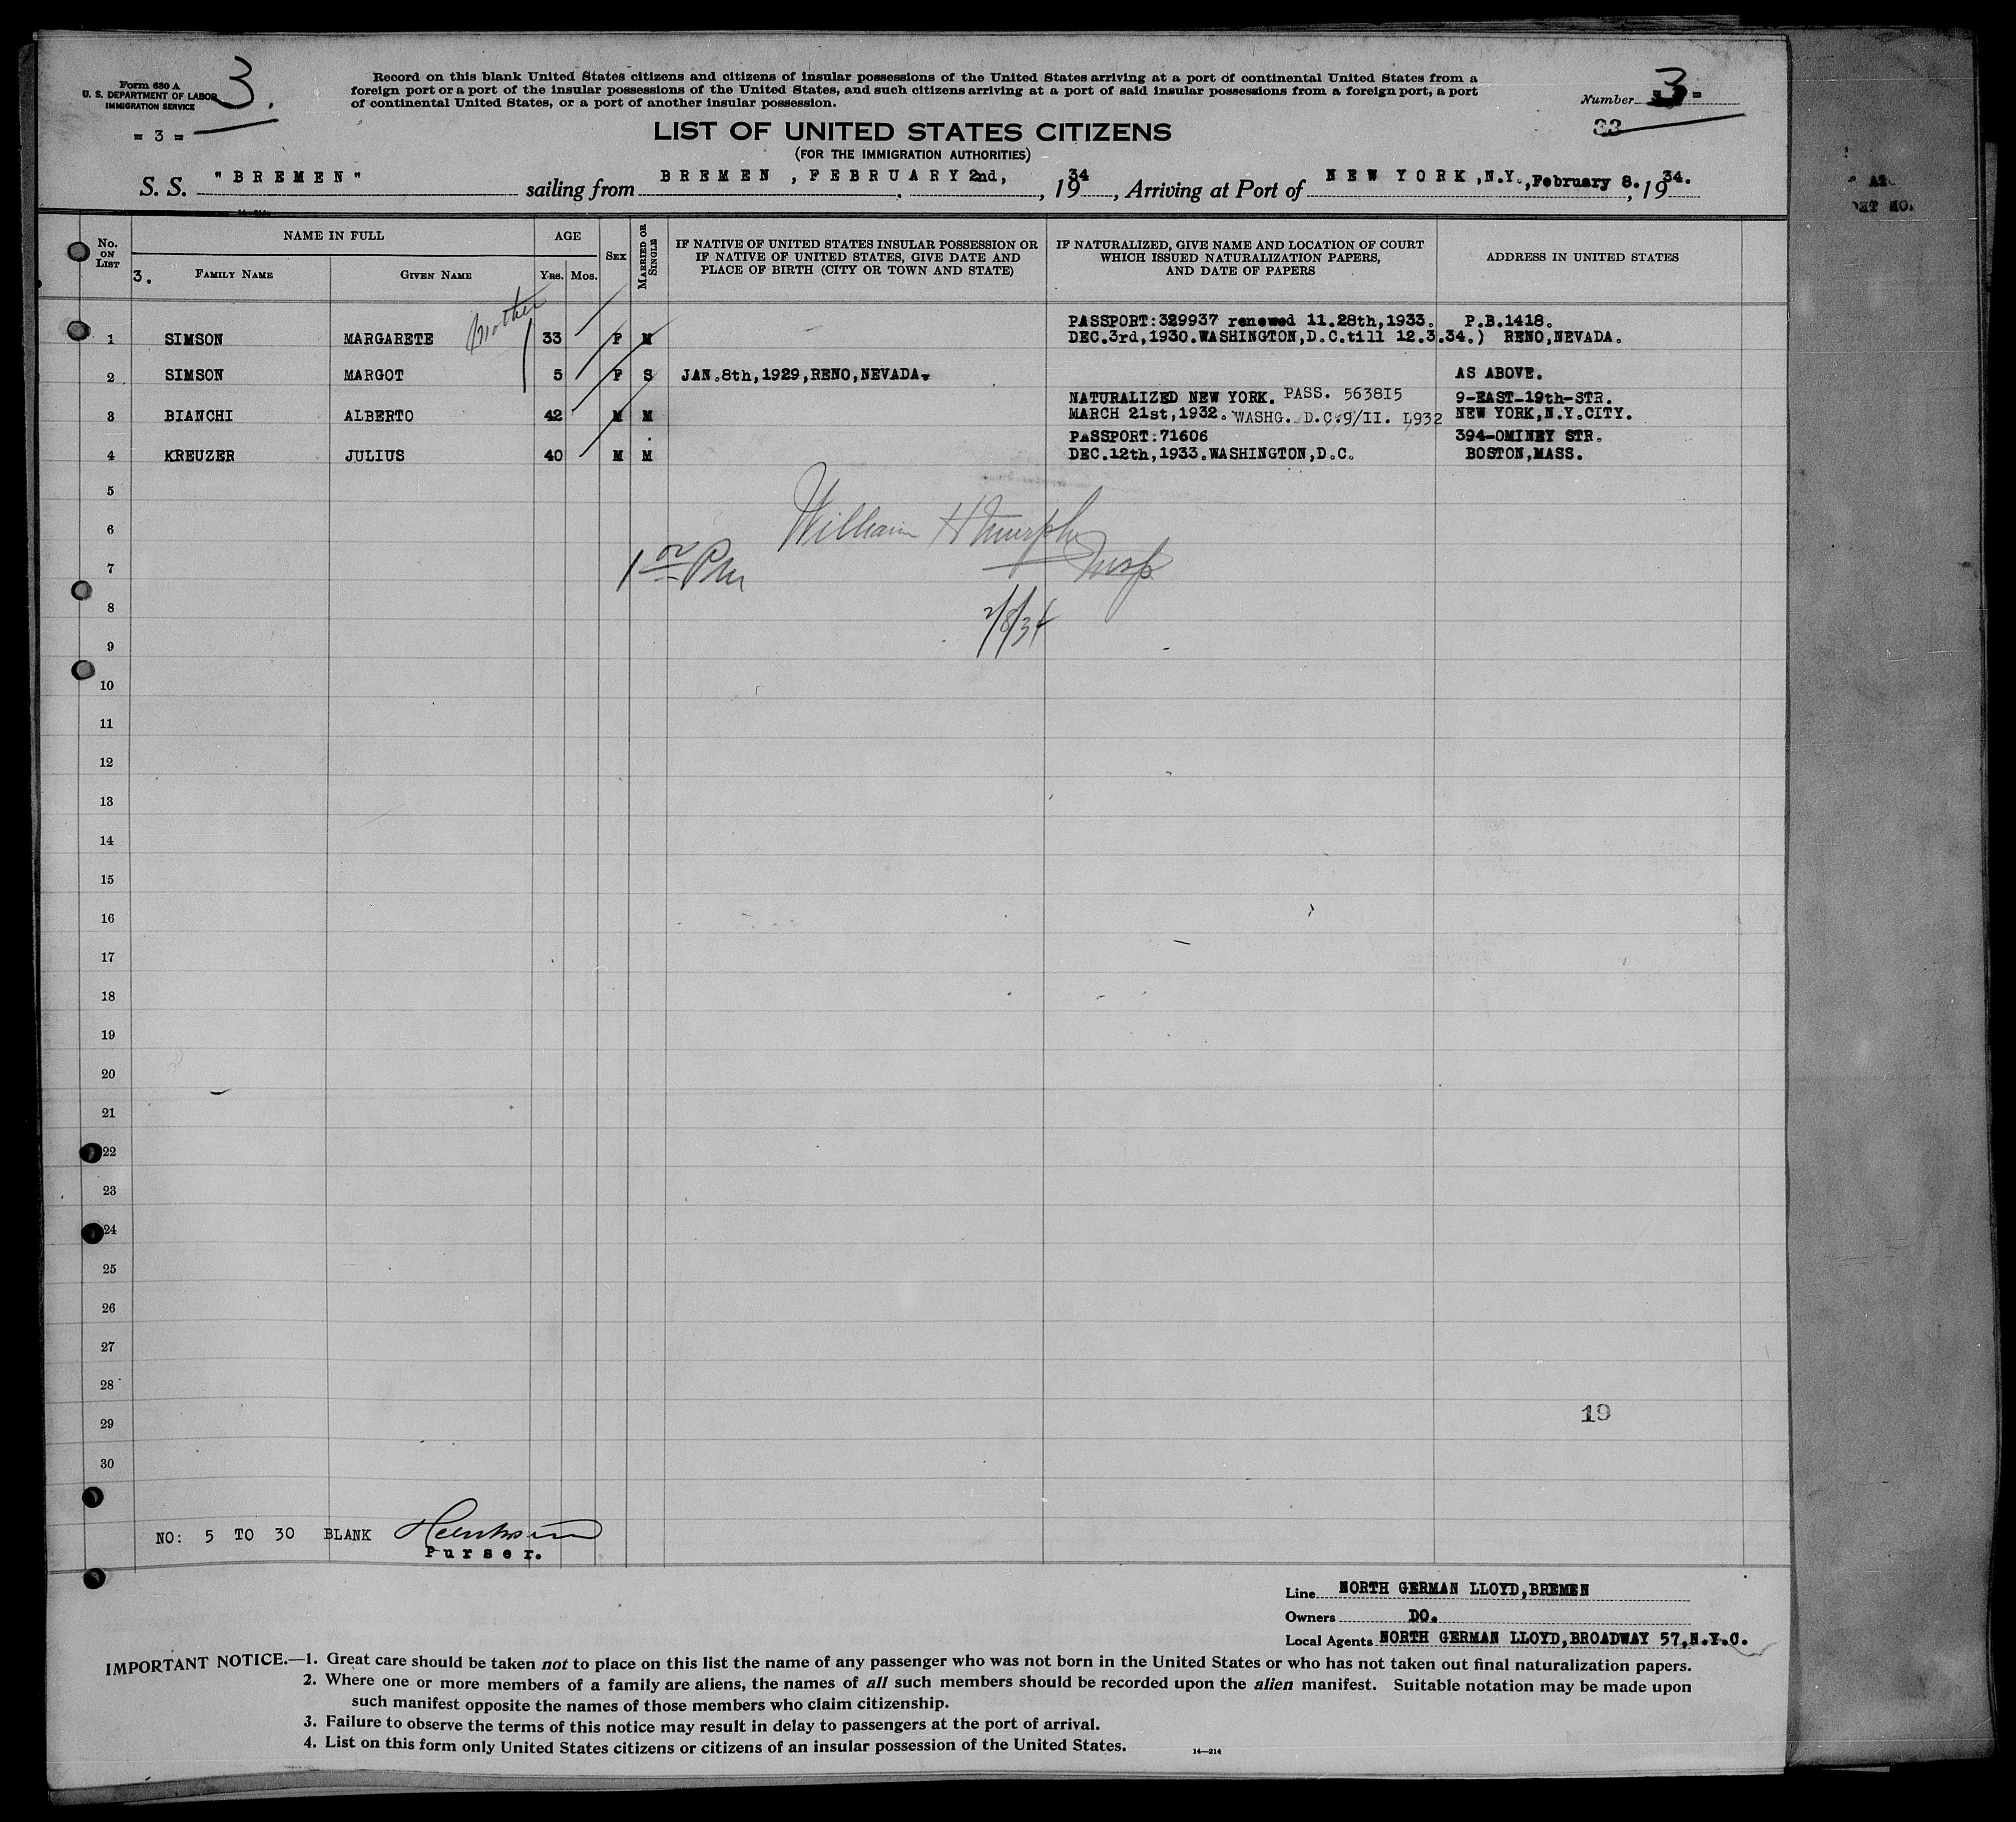 Form 630 A
U. S. DEPARTMENT OF LABOR
IMMIGRATION SERVICE
3.
= 3 =
Record on this blank United States citizens and citizens of insular possessions of the United States arriving at a port of continental United States from a
foreign port or a port of the insular possessions of the United States, and such citizens arriving at a port of said insular possessions from a foreign port, a port
of continental United States, or a port of another insular possession.
Number 3 -
33
LIST OF UNITED STATES CITIZENS
(FOR THE IMMIGRATION AUTHORITIES)
S. S. "BREMEN" sailing from BREMEN, FEBRUARY 2nd, , 1934, Arriving at Port of NEW YORK, N.Y., February 8., 1934.
No. ON LIST
NAME IN FULL
3. FAMILY NAME
GIVEN NAME
AGE
YRS. MOS.
SEX
MARRIED OR SINGLE
IF NATIVE OF UNITED STATES INSULAR POSSESSION OR
IF NATIVE OF UNITED STATES, GIVE DATE AND
PLACE OF BIRTH (CITY OR TOWN AND STATE)
IF NATURALIZED, GIVE NAME AND LOCATION OF COURT
WHICH ISSUED NATURALIZATION PAPERS,
AND DATE OF PAPERS
ADDRESS IN UNITED STATES
PASSPORT:329937 renewed 11.28th,1933. P.B.1418.
1 SIMSON MARGARETE Mother 33 F M DEC.3rd,1930.WASHINGTON,D.C.till 12.3.34.) RENO,NEVADA.
2 SIMSON MARGOT 5 F S JAN.8th,1929,RENO,NEVADA. AS ABOVE.
NATURALIZED NEW YORK. PASS. 563815 9-EAST-19th-STR.
3 BIANCHI ALBERTO 42 M M MARCH 21st,1932. WASHG. D.C.9/II. L932 NEW YORK,N.Y.CITY.
PASSPORT:71606 394-OMINEY STR.
4 KREUZER JULIUS 40 M M DEC.12th,1933.WASHINGTON,D.C. BOSTON,MASS.
5
6 William H Murphy
7 1 00 PM Insp
8 2/8/34
9
10
11
12
13
14
15
16
17
18
19
20
21
22
23
24
25
26
27
28
29 19
30
NO: 5 TO 30 BLANK
Purser.
Line NORTH GERMAN LLOYD,BREMEN
Owners DO.
Local Agents NORTH GERMAN LLOYD,BROADWAY 57,N.Y.C.
IMPORTANT NOTICE.—1. Great care should be taken not to place on this list the name of any passenger who was not born in the United States or who has not taken out final naturalization papers.
2. Where one or more members of a family are aliens, the names of all such members should be recorded upon the alien manifest. Suitable notation may be made upon
such manifest opposite the names of those members who claim citizenship.
3. Failure to observe the terms of this notice may result in delay to passengers at the port of arrival.
4. List on this form only United States citizens or citizens of an insular possession of the United States.
14—214